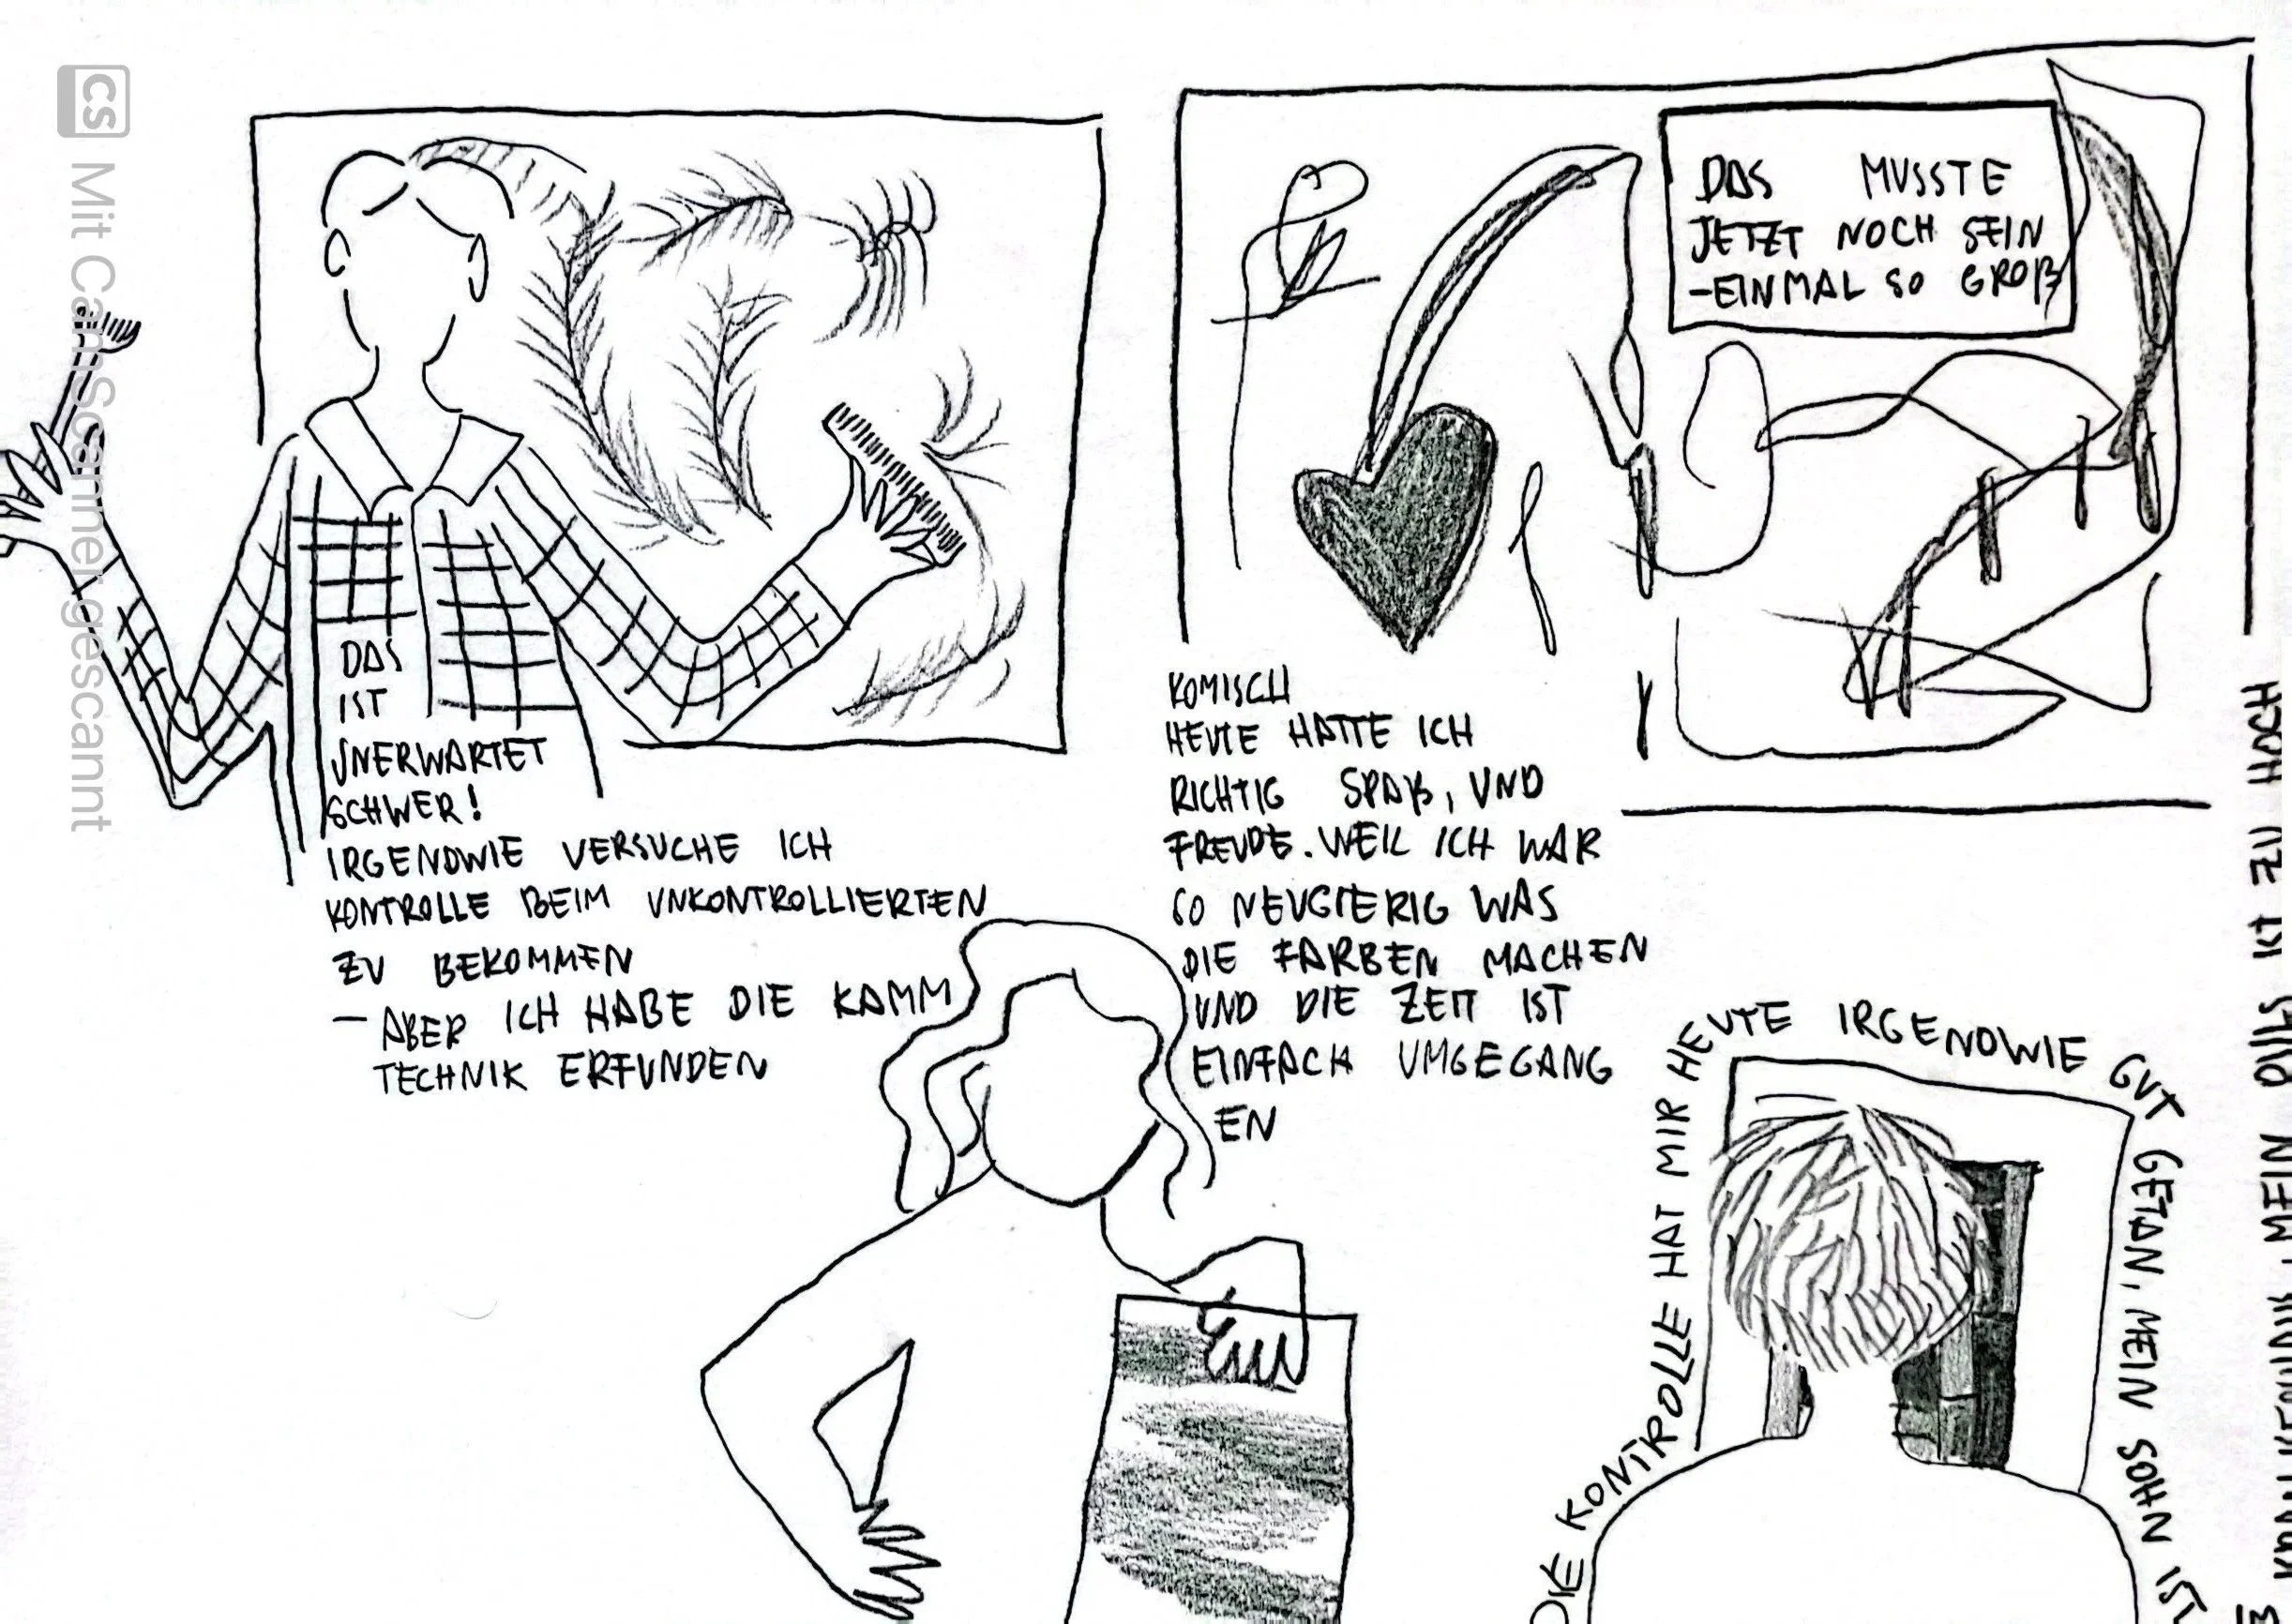 CS Mit CamScanner gescannt
DAS
IST
UNERWARTET
SCHWER!
IRGENDWIE VERSUCHE ICH
KONTROLLE BEIM UNKONTROLLIERTEN
ZU BEKOMMEN
– ABER ICH HABE DIE KAMM
TECHNIK ERFUNDEN
DAS MUSSTE
JETZT NOCH SEIN
– EINMAL SO GROß
KOMISCH
HEUTE HATTE ICH
RICHTIG SPAß, UND
FREUDE. WEIL ICH WAR
SO NEUGIERIG WAS
DIE FARBEN MACHEN
UND DIE ZEIT IST
EINFACH UMGEGANG
EN
DIE KONTROLLE HAT MIR HEUTE IRGENDWIE GUT GETAN, MEIN SOHN IST
MEIN PULS IST ZU HOCH